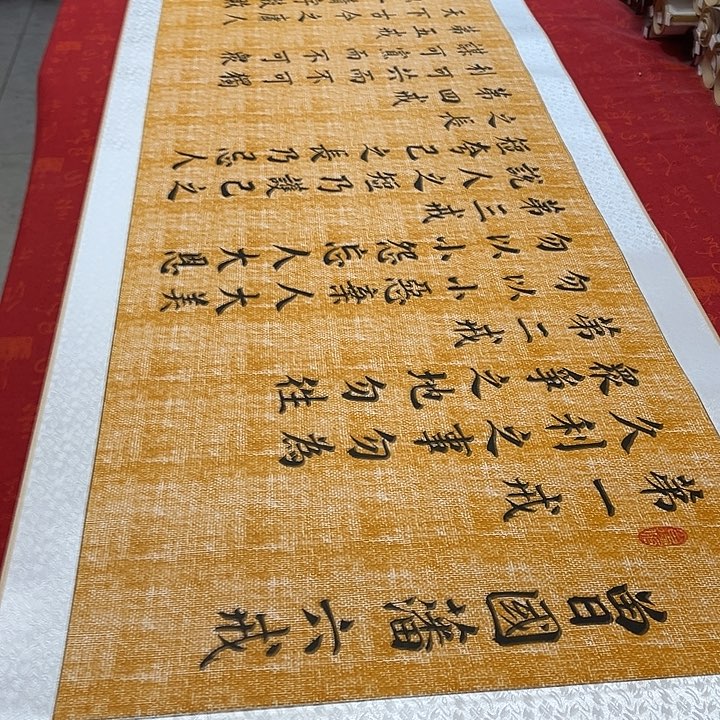 曾國藩六戒
第一戒
久利之事勿為
衆爭之地勿往
第二戒
勿以小惡棄人大美
勿以小怨忘人大恩
第三戒
說人之短乃護己之
短夸己之長乃忌人
之長
第四戒
利可共而不可獨
謀可寡而不可衆
第五戒
天下古今之庸人